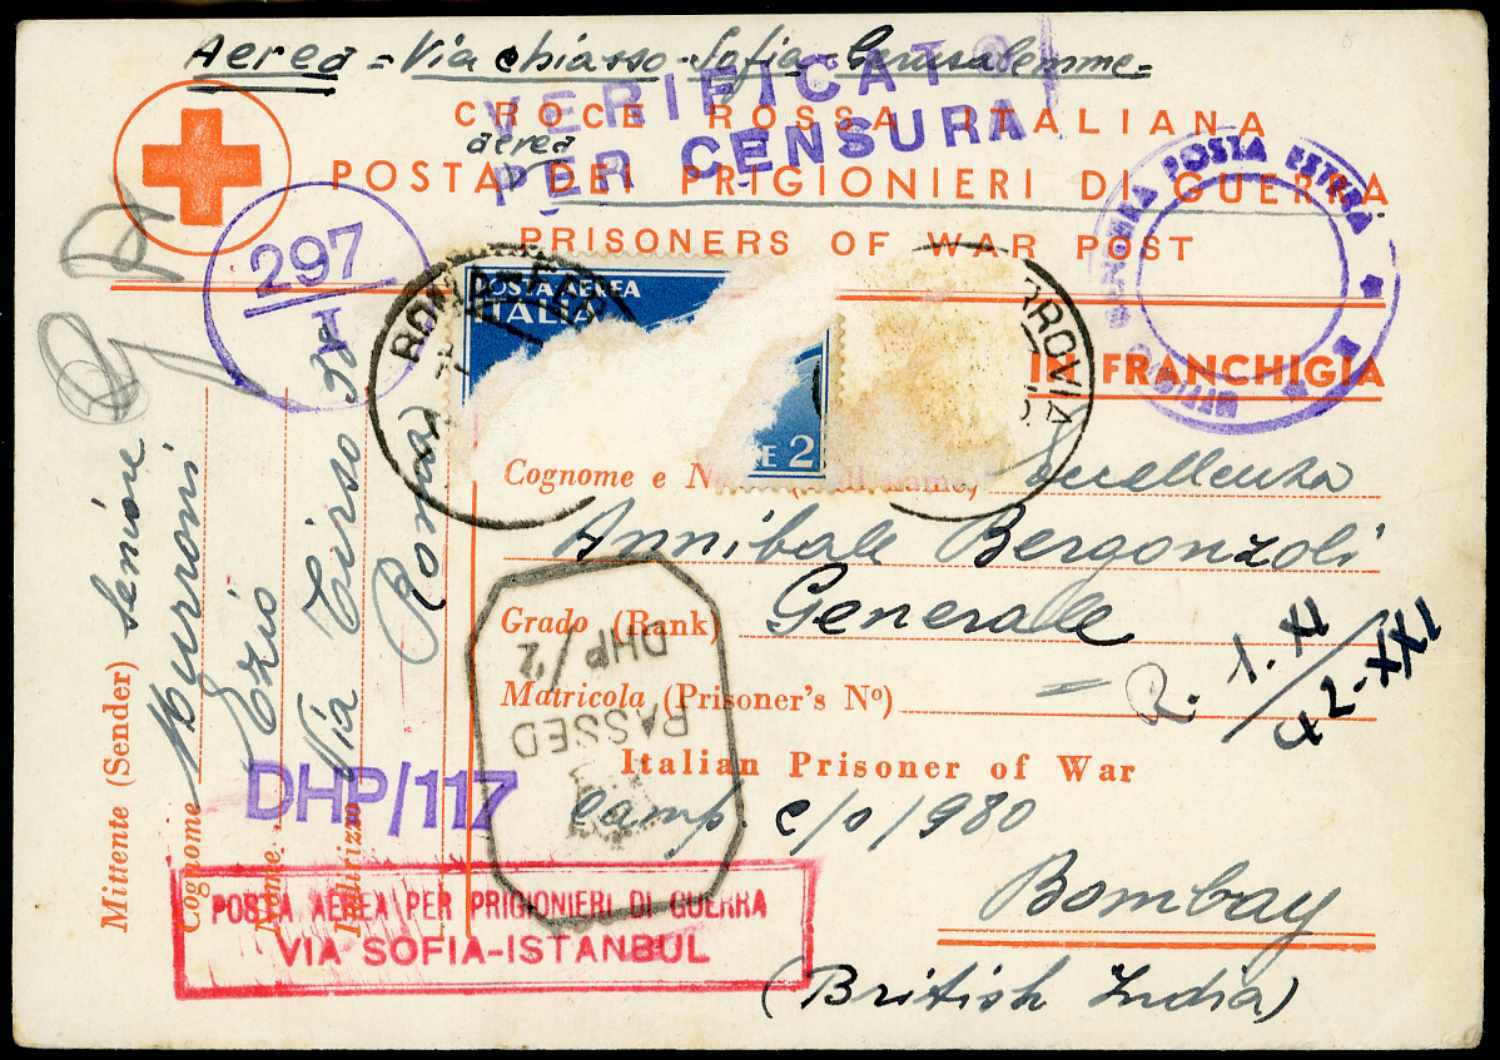 Aerea = Via Chiasso - Sofia - Gerusalemme =
VERIFICATO
PER CENSURA
CROCE ROSSA ITALIANA
aerea
POSTA DEI PRIGIONIERI DI GUERRA
PRISONERS OF WAR POST
POSTA ESTERA
UFFICIO
297
I
ROMA FERROVIA
POSTA AEREA
ITALIA
E 2
IN FRANCHIGIA
Cognome e N name, Eccellenza
Annibale Bergonzoli
Grado (Rank) Generale
Matricola (Prisoner's No) =
R. 1. XI
42-XXI
Italian Prisoner of War
camp. c/o/980
Bombay
(British India)
DHP/2
PASSED
Mittente (Sender) Seniore
Cognome Murroni
Nome Ezio
Indirizzo Via Tirso 39
Roma
DHP/117
POSTA AEREA PER PRIGIONIERI DI GUERRA
VIA SOFIA-ISTANBUL